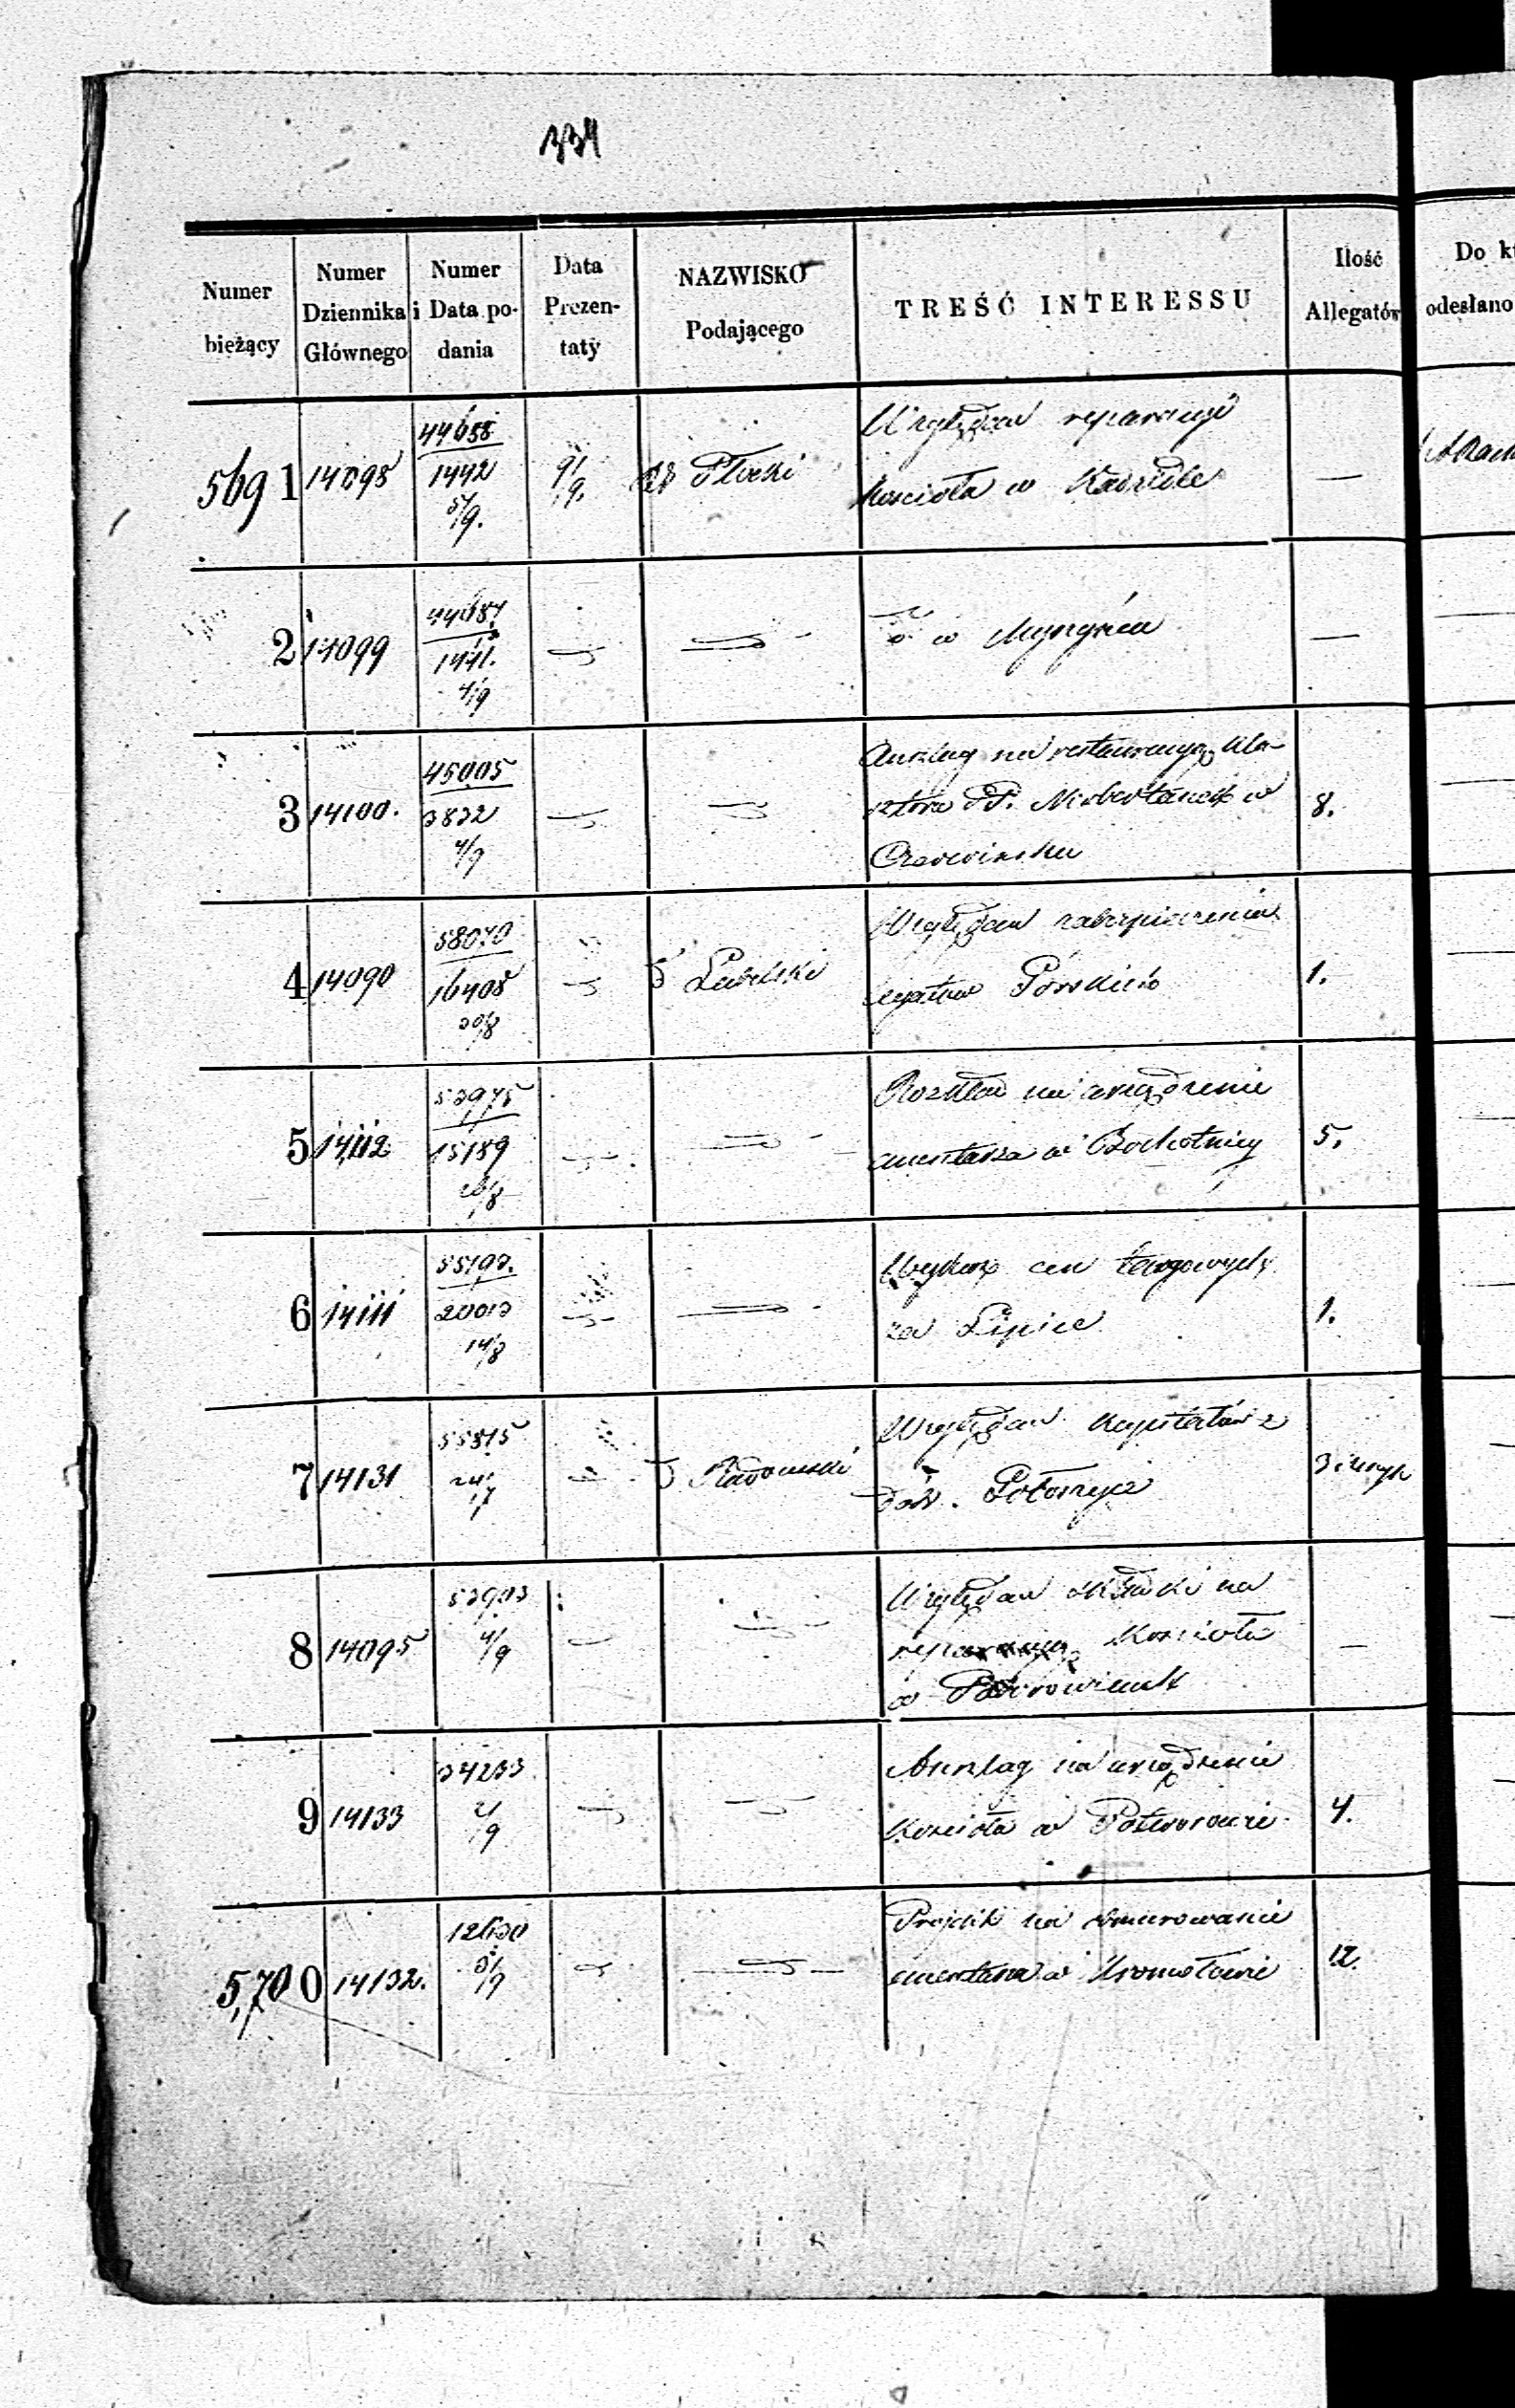 334
Numer bieżący
Numer Dziennika Głównego
Numer i Data podania
Data Prezentaty
NAZWISKO Podającego
TREŚĆ INTERESSU
Ilość Allegatów
Do k
odesłano
5691 14098 44658 1442 5/9. 9/9. Płocki
Względem reparacyi
Kościoła w Kadzidle —
2 14099 44687 1441. 4/9
w Myszyńcu —
3 14100. 45005 3832 4/9
Anszlag na restauracyą Kla-
sztoru PP. Norbertanek w
Czerwińsku 8.
4 14090 58070 16408 30/8 Lubelski
Względem zabezpieczenia
legatów Górskich 1.
5 14112 53975 15189 26/8
Rozkład na urządzenie
cmentarza w Bochotnicy 5.
6 14111 55193. 20013 14/8
Wykaz cen targowych
za Lipiec 1.
7 14131 55815 24/7 Radomski
Względem Kapitałów z
dób. Połomyja
8 14095 53903 4/9
Względem składki na
reparacyą Kościoła
w —
9 14133 34233 2/9
Anszlag na urządzenie
Kościoła w Potworowie 4.
5,700 14132. 12630 3/9
Projekt na obmurowanie
cmentarza w Kromołowie 12.